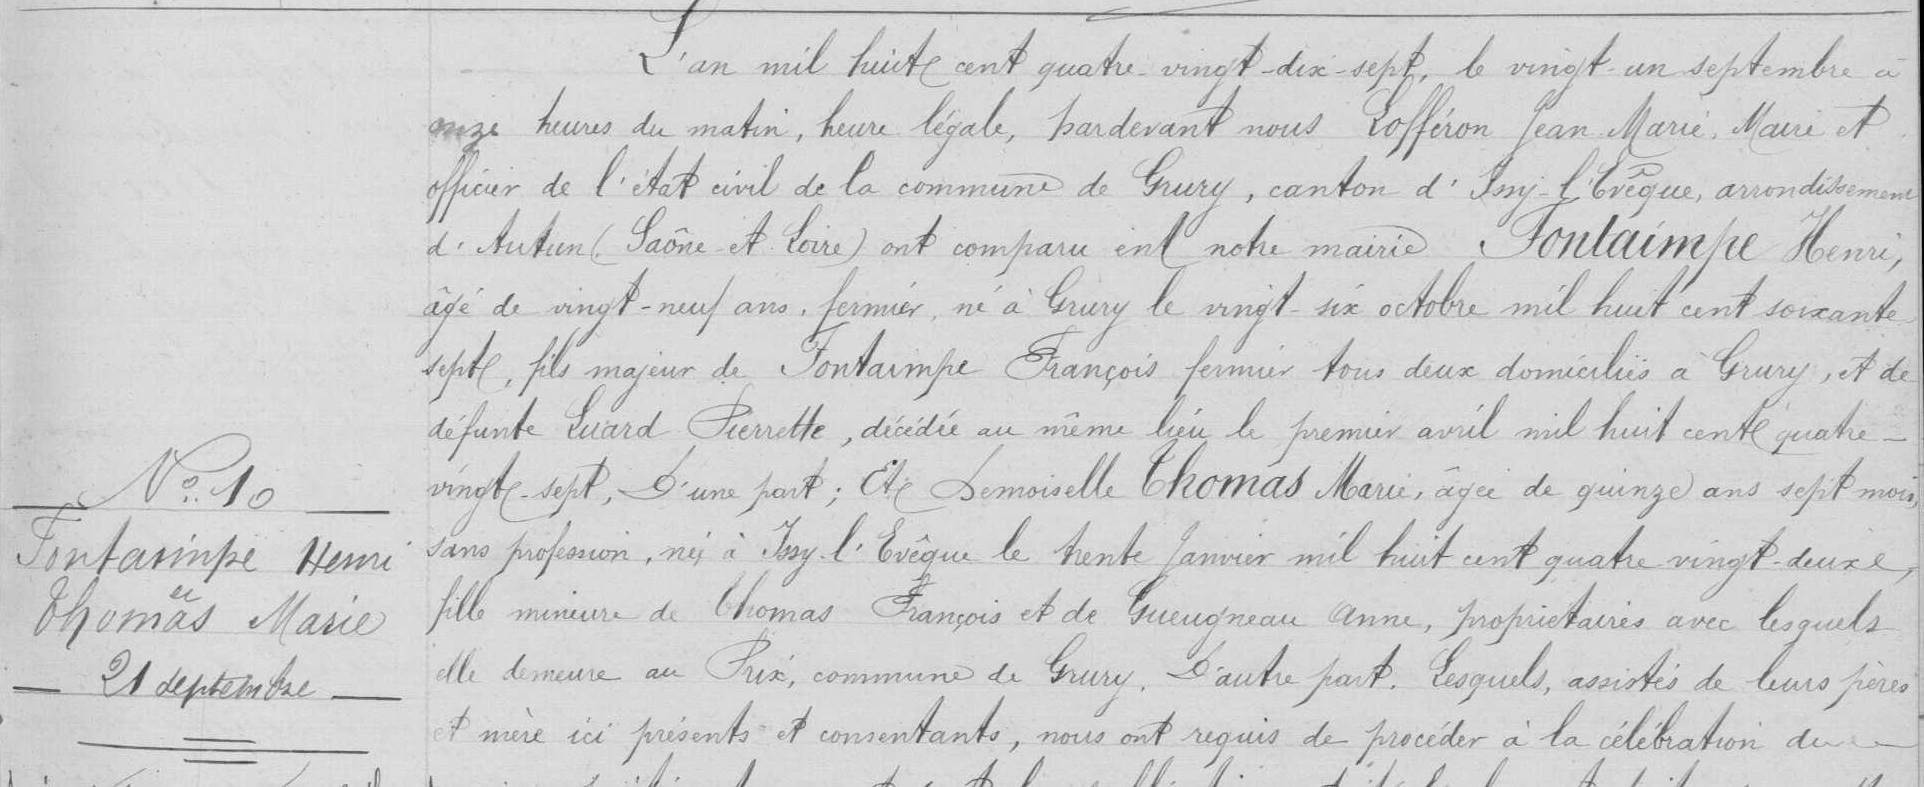 L'an mil huit cent quatre-vingt-dix-sept, le vingt-un septembre à
onze heures du matin, heure légale, pardevant nous Lofféron Jean Marie, Maire et
officier de l'état civil de la commune de Grury, canton d'Issy-l'Evêque, arrondissement
d'Autun (Saône-et-Loire) ont comparu en notre mairie Fontaimpe Henri,
âgé de vingt-neuf ans, fermier, né à Grury le vingt-six octobre mil huit cent soixante
sept, fils majeur de Fontaimpe François fermier tous deux domiciliés à Grury, et de
défunte Luard Pierrette, décédée au même lieu le premier avril mil huit cent quatre-
vingt-sept, D'une part; Et Demoiselle Thomas Marie, âgée de quinze ans sept mois,
sans profession, née à Issy-l'Evêque le trente Janvier mil huit cent quatre vingt-deux,
fille mineure de Thomas François et de Gueugneau Anne, propriétaires avec lesquels
elle demeure au Prix, commune de Grury, D'autre part. Lesquels, assistés de leurs pères
et mère ici présents et consentants, nous ont requis de procéder à la célébration du
N° 10
Fontaimpe Henri
et
Thomas Marie
21 septembre